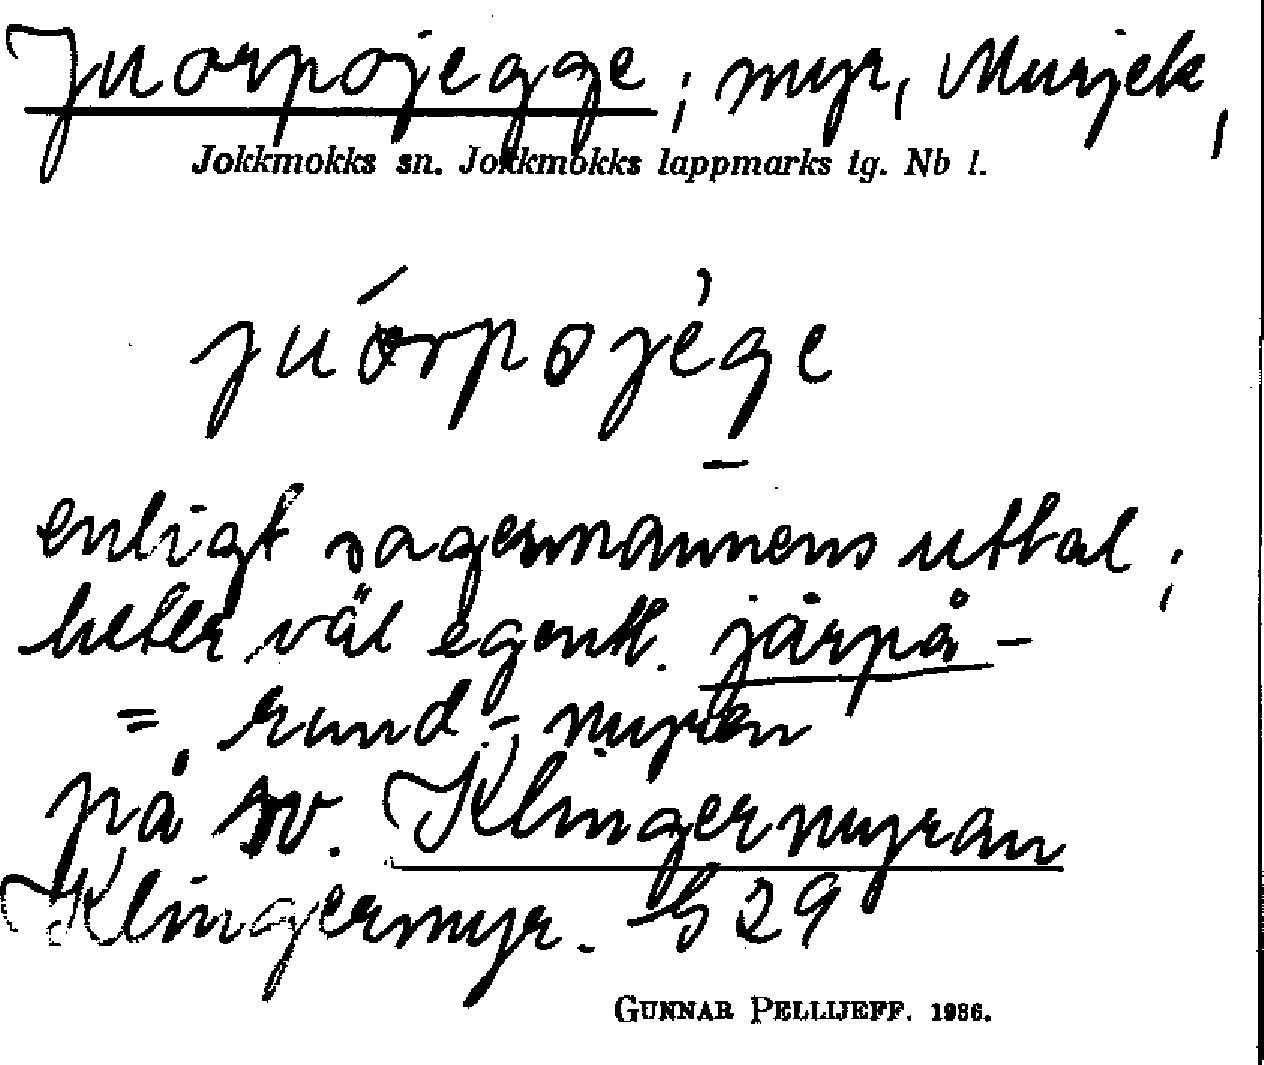 Juorpojegge, myr, Murjek,
Jokkmokks sn. Jokkmokks lappmarks tg. Nb l.
juórpojége
enligt sagesmannens uttal,
heter väl egentl. jårpå-
= rund-myren
på sv. Klingermyran
Klingermyr. G 29
GUNNAR PELLIJEFF. 1936.